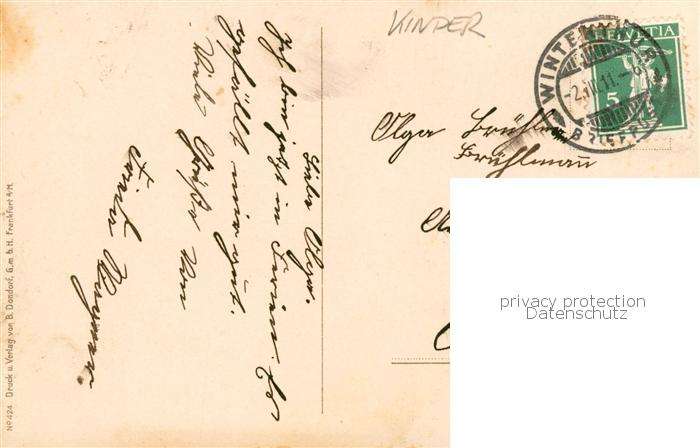 KINDER
WINTERTHUR
HELVETIA
-2.VII.11.-8
5
BRIEFTR.
Liebe Olga.
Ich bin jetzt in Ferien. Es
gefällt mir gut.
Viele Grüße von
Frieda
Olga Brühlm
Brühlmann
privacy protection
Datenschutz
No 424 Druck u. Verlag von B. Dondorf, G.m.b.H. Frankfurt a/M.